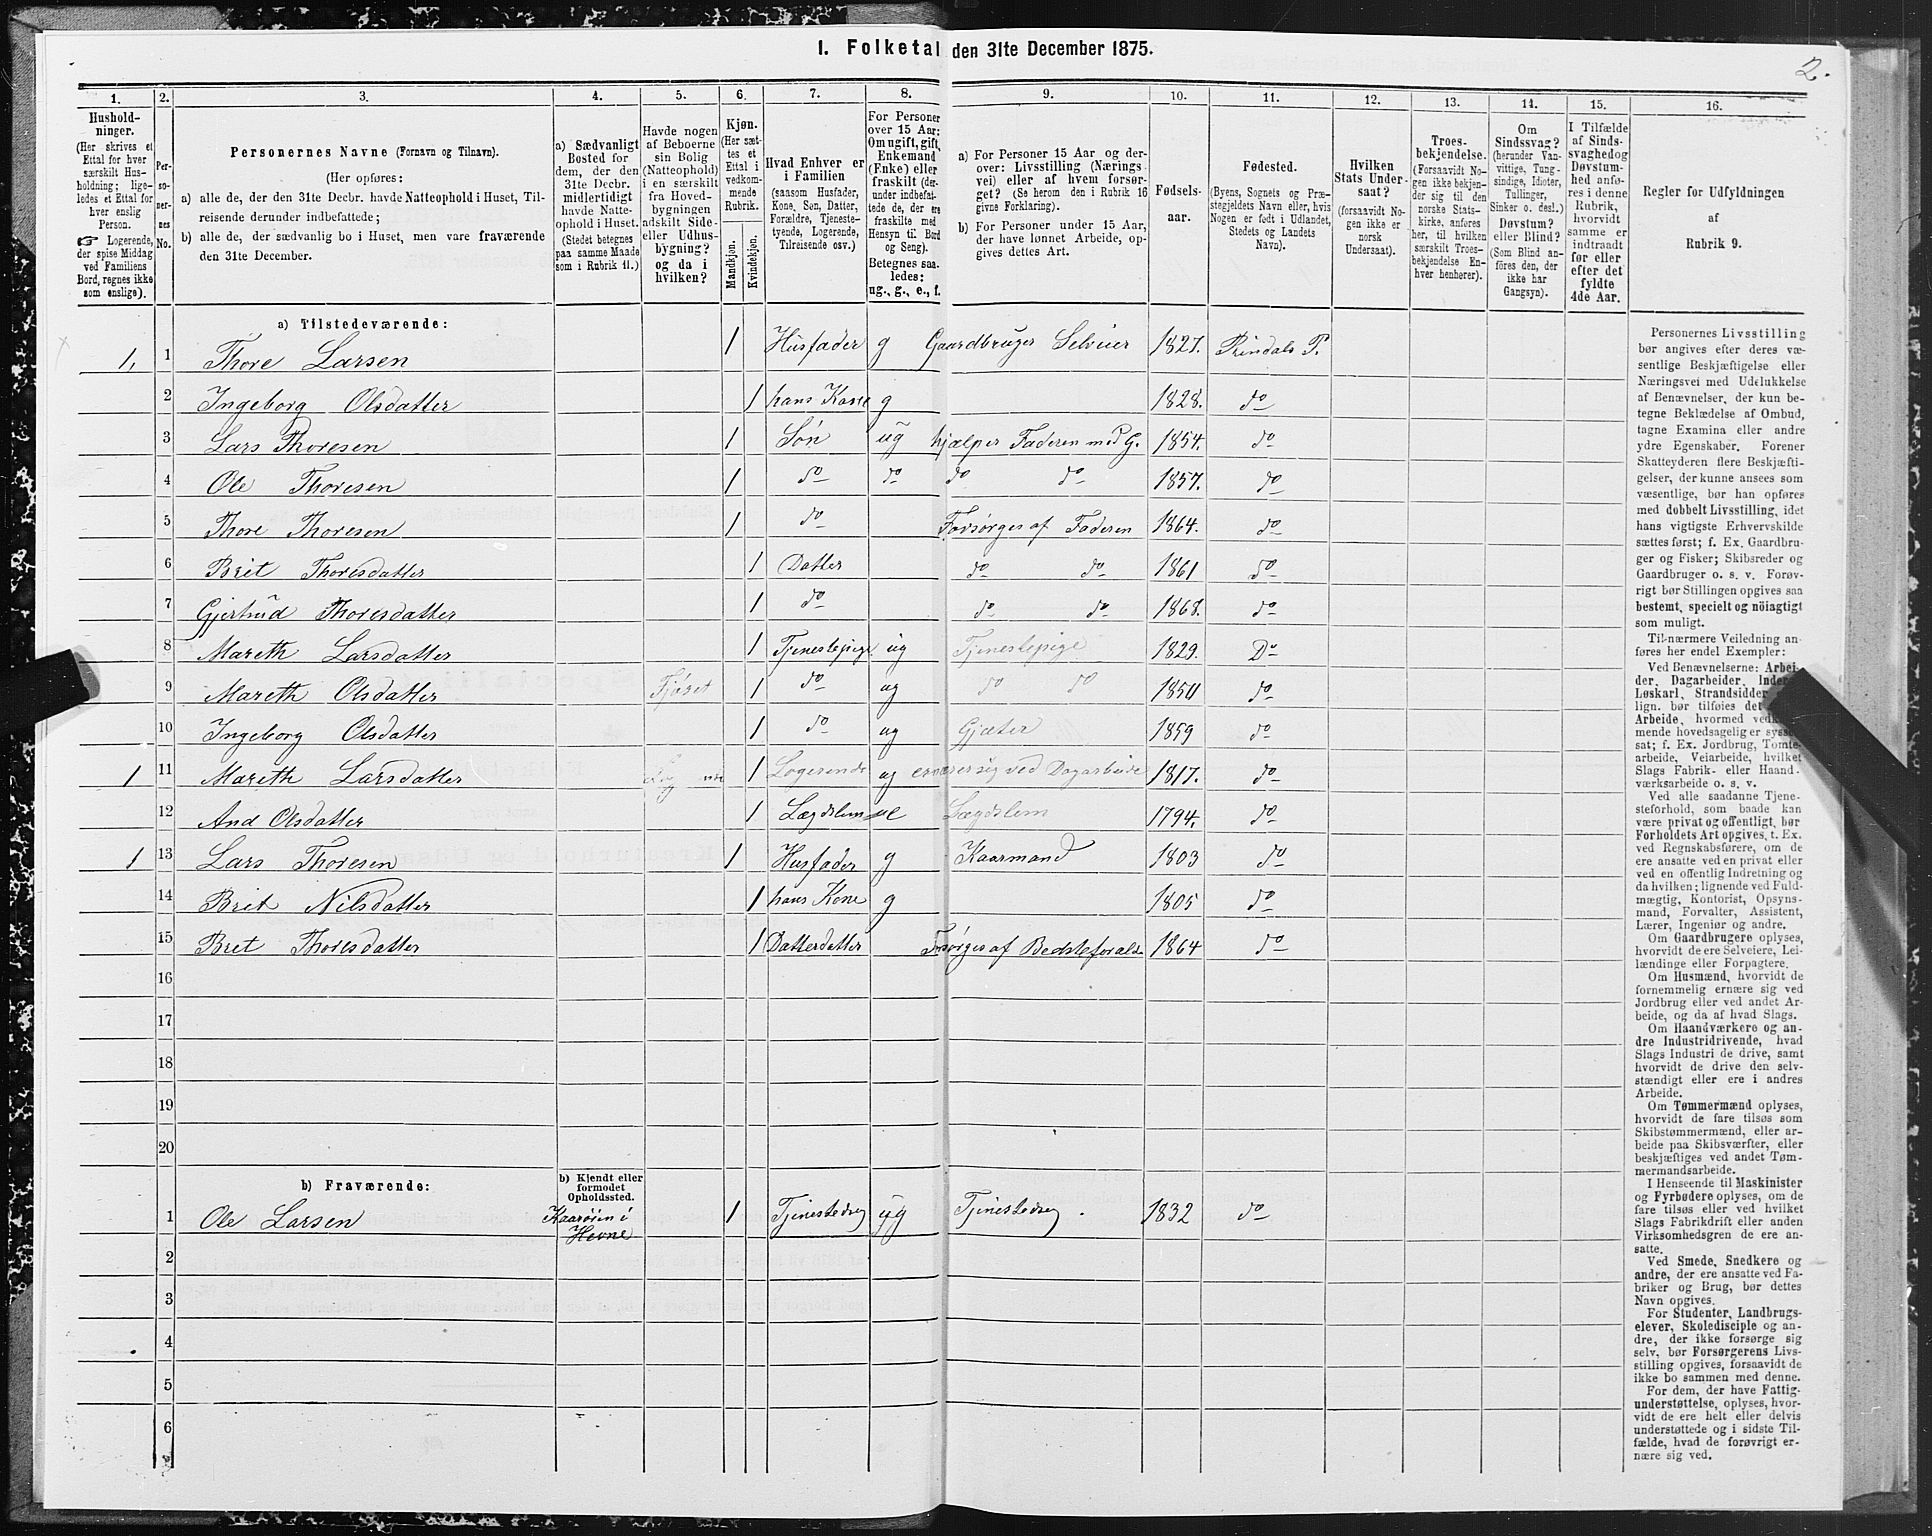 I. Folketal den 31te December 1875.
2.
1. 2. 3. 4. 5. 6. 7. 8. 9. 10. 11. 12. 13. 14. 15. 16.
Hushold-
ninger.
(Her skrives et
Ettal for hver
særskilt Hus-
holdning; lige-
ledes et Ettal for
hver enslig
Person.
☞ Logerende,
der spise Middag
ved Familiens
Bord, regnes ikke
som enslige).
Per-
so-
ner-
nes
No.
Personernes Navne (Fornavn og Tilnavn).
(Her opføres:
a) alle de, der den 31te Decbr. havde Natteophold i Huset, Til-
reisende derunder indbefattede;
b) alle de, der sædvanlig bo i Huset, men vare fraværende
den 31te December.
a) Sædvanligt
Bosted for
dem, der den
31te Decbr.
midlertidigt
havde Natte-
ophold i Huset.
(Stedet betegnes
paa samme Maade
som i Rubrik 11.)
Havde nogen
af Beboerne
sin Bolig
(Natteophold)
i en særskilt
fra Hoved-
bygningen
adskilt Side-
eller Udhus-
bygning?
og da i
hvilken?
Kjøn.
(Her sæt-
tes et
Ettal i
vedkom-
mende
Rubrik.
Mandkjøn.
Kvindekjøn.
Hvad Enhver er
i Familien
(saasom Husfader,
Kone, Søn, Datter,
Forældre, Tjeneste-
tyende, Logerende,
Tilreisende osv.)
For Personer
over 15 Aar:
Om ugift, gift,
Enkemand
(Enke) eller
fraskilt (der-
under indbefat-
tede de, der ere
fraskilte med
Hensyn til Bord
og Seng).
Betegnes saa-
ledes:
ug., g., e., f.
a) For Personer 15 Aar og der-
over: Livsstilling (Nærings-
vei) eller af hvem forsør-
get? (Se herom den i Rubrik 16
givne Forklaring).
b) For Personer under 15 Aar,
der have lønnet Arbeide, op-
gives dettes Art.
Fødsels-
aar.
Fødested.
(Byens, Sognets og Præ-
stegjeldets Navn eller, hvis
Nogen er født i Udlandet,
Stedets og Landets
Navn).
Hvilken
Stats Under-
saat?
(forsaavidt No-
gen ikke er
norsk
Undersaat).
Troes-
bekjendelse.
(Forsaavidt No-
gen ikke bekjen-
der sig til den
norske Stats-
kirke, anføres
her, til hvilken
særskilt Troes-
bekjendelse En-
hver henhører).
Om
Sindssvag?
(herunder Van-
vittige, Tung-
sindige, Idioter,
Tullinger,
Sinker o. desl.)
Døvstum?
eller Blind?
(Som Blind an-
føres den, der
ikke har
Gangsyn).
I Tilfælde
af Sinds-
svaghed og
Døvstum-
hed anfø-
res i denne
Rubrik,
hvorvidt
samme er
indtraadt
før eller
efter det
fyldte
4de Aar.
Regler for Udfyldningen
af
Rubrik 9.
a) Tilstedeværende:
1, 1 Thore Larsen 1 Husfader g Gaardbruger Selveier 1827. Rindals P.
2 Ingeborg Olsdatter 1 hans Kone g 1828. do
3 Lars Thoresen 1 Søn ug hjælper Faderen med G. 1854. do
4 Ole Thoresen 1 do do do do 1857. do
5 Thore Thoresen 1 do Forsørges af Faderen 1864. do
6 Brit Thoresdatter 1 Datter do do 1861 do
7 Gjertrud Thoresdatter 1 do do do 1868. do
8 Mareth Larsdatter 1 Tjenestepige ug Tjenestepige 1829. Do
9 Mareth Olsdatter Fjøset 1 do ug do do 1850 do
10 Ingeborg Olsdatter 1 do ug Gjæter 1859 do
1 11 Mareth Larsdatter 1 Logerende ug ernærer sig ved Dagarbeide 1817. do
12 And Olsdatter 1 Lægdslem e Lægdslem 1794. do
1 13 Lars Thoresen 1 Husfader g Kaarmand 1803 do
14 Brit Nilsdatter 1 hans Kone g 1805 do
15 Bret Thoresdatter 1 Datterdatter Forsørges af Bedsteforæld. 1864 do
16
17
18
19
20
b) Fraværende:
b) Kjendt eller
formodet
Opholdssted.
1 Ole Larsen Kaarøien i Hevne 1 Tjenestedreng ug Tjenestedreng 1832 do
2
3
4
5
6
Personernes Livsstilling
bør angives efter deres væ-
sentlige Beskjæftigelse eller
Næringsvei med Udelukkelse
af Benævnelser, der kun be-
tegne Beklædelse af Ombud,
tagne Examina eller andre
ydre Egenskaber. Forener
Skatteyderen flere Beskjæfti-
gelser, der kunne ansees som
væsentlige, bør han opføres
med dobbelt Livsstilling, idet
hans vigtigste Erhvervskilde
sættes først; f. Ex. Gaardbru-
ger og Fisker; Skibsreder og
Gaardbruger o. s. v. Forøv-
rigt bør Stillingen opgives saa
bestemt, specielt og nöiagtigt
som muligt.
Til nærmere Veiledning an-
føres her endel Exempler:
Ved Benævnelserne: Arbei-
der, Dagarbeider,
Løskarl, Strandsidder
lign. bør tilføies det
Arbeide, hvormed
mende hovedsagelig er
sat; f. Ex. Jordbrug, Tomte-
arbeide, Veiarbeide, hvilket
Slags Fabrik- eller Haand-
værksarbeide o. s. v.
Ved alle saadanne Tjene-
steforhold, som baade kan
være privat og offentligt, bør
Forholdets Art opgives, t. Ex.
ved Regnskabsførere, om de
ere ansatte ved en privat eller
ved en offentlig Indretning og
da hvilken; lignende ved Fuld-
mægtig, Kontorist, Opsyns-
mand, Forvalter, Assistent,
Lærer, Ingeniør og andre.
Om Gaardbrugere oplyses,
hvorvidt de ere Selveiere, Lei-
lændinge eller Forpagtere.
Om Husmænd, hvorvidt de
fornemmelig ernære sig ved
Jordbrug eller ved andet Ar-
beide, og da af hvad Slags.
Om Haandværkere og an-
dre Industridrivende, hvad
Slags Industri de drive, samt
hvorvidt de drive den selv-
stændigt eller ere i andres
Arbeide.
Om Tømmermænd oplyses,
hvorvidt de fare tilsøs som
Skibstømmermænd, eller ar-
beide paa Skibsværfter, eller
beskjæftiges ved andet Tøm-
mermandsarbeide.
I Henseende til Maskinister
og Fyrbødere oplyses, om de
fare tilsøs eller ved hvilket
Slags Fabrikdrift eller anden
Virksomhedsgren de ere an-
satte.
Ved Smede, Snedkere og
andre, der ere ansatte ved Fa-
briker og Brug, bør dettes
Navn opgives.
For Studenter, Landbrugs-
elever, Skoledisciple og an-
dre, der ikke forsørge sig
selv, bør Forsørgerens Livs-
stilling opgives, forsaavidt de
ikke bo sammen med denne.
For dem, der have Fattig-
understøttelse, oplyses, hvor-
vidt de ere helt eller delvis
understøttede og i sidste Til-
fælde, hvad de forøvrigt er-
nære sig ved.